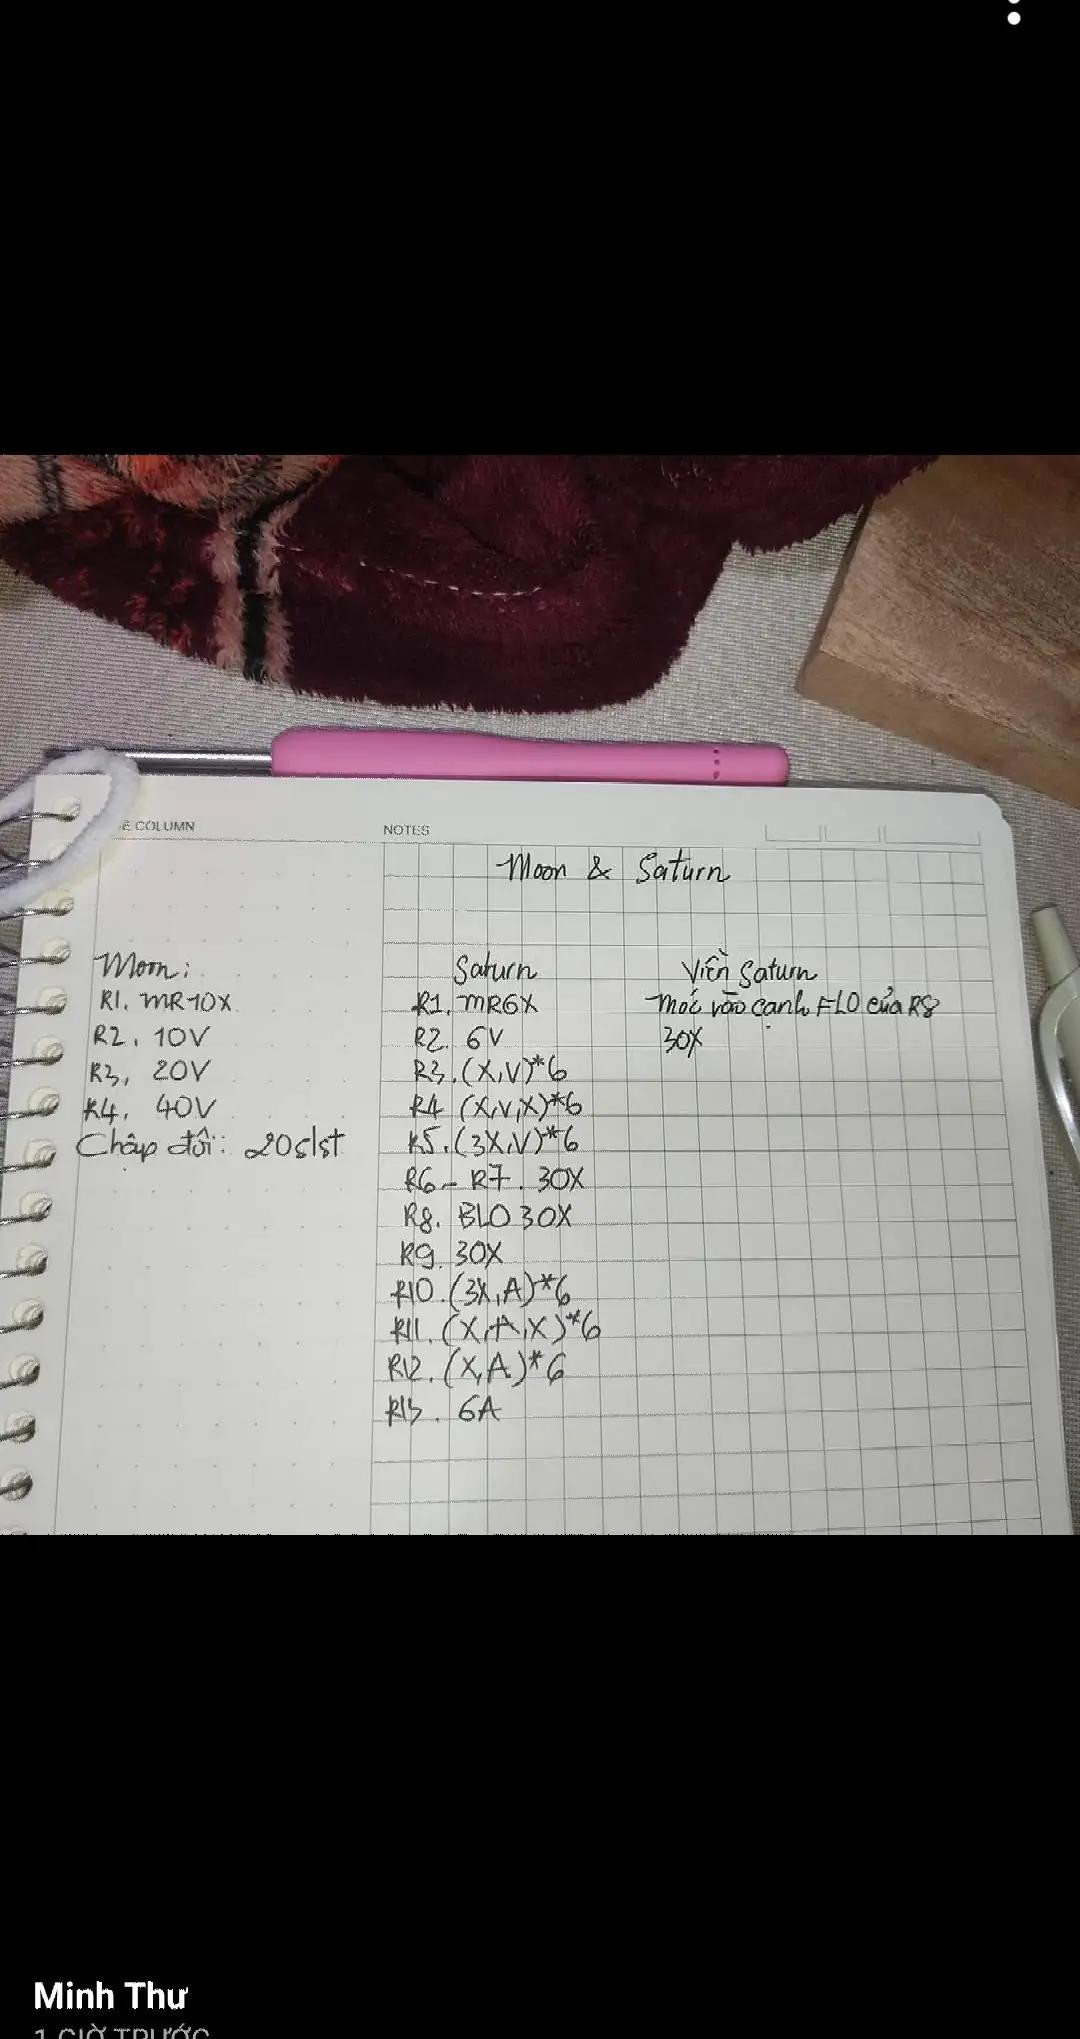 E COLUMN
NOTES
Moon & Saturn
Moon:
R1. MR10X
R2. 10V
R3. 20V
R4. 40V
Chập đôi: 20slst
Saturn
R1. MR6X
R2. 6V
R3. (X,V)*6
R4 (X,V,X)*6
R5. (3X,V)*6
R6 - R7. 30X
R8. BLO 30X
R9. 30X
R10. (3X,A)*6
R11. (X,A,X)*6
R12. (X,A)*6
R13. 6A
Viền Saturn
móc vào cạnh FLO của R8
30X
Minh Thư
1 GIỜ TRƯỚC